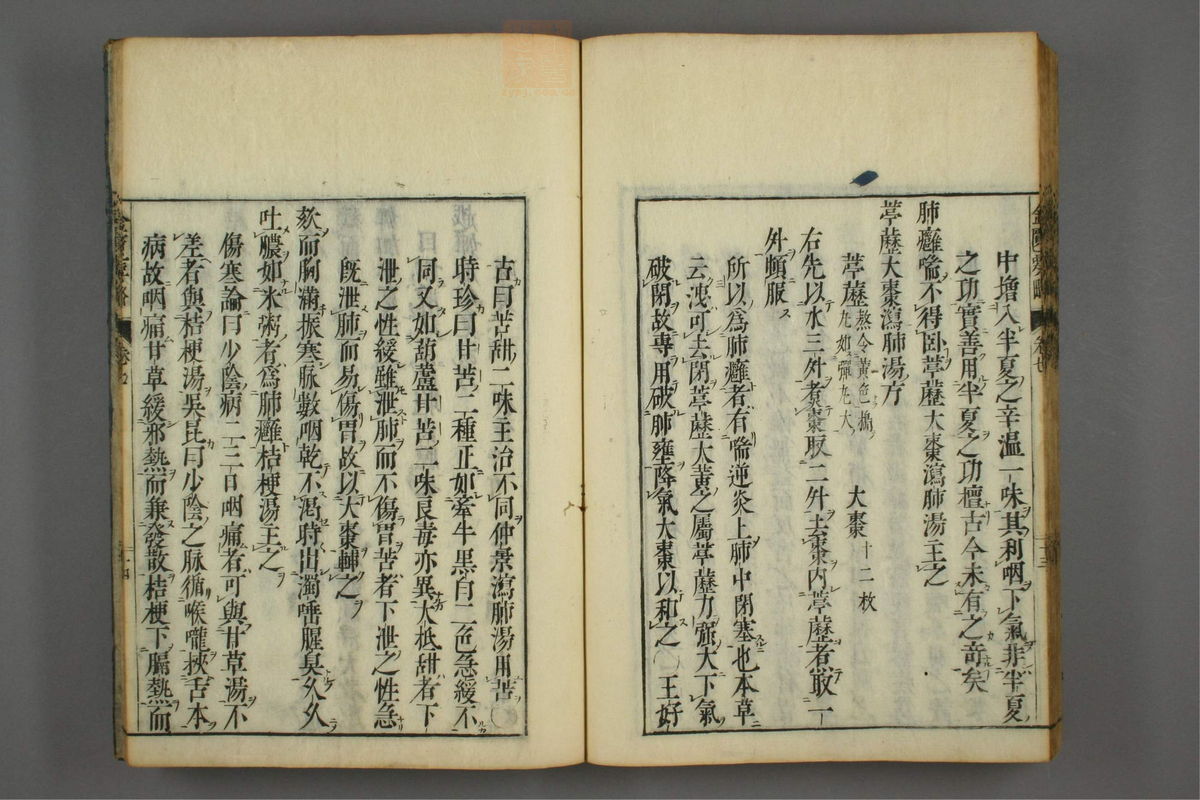 中增入半夏之辛溫一味其利咽下氣非半夏
之功實善用半夏之功擅古今未有之奇矣
肺癰喘不得卧葶藶大棗瀉肺湯主之
葶藶大棗瀉肺湯方
葶藶熬令黄色搗丸如彈丸大 大棗十二枚
右先以水三升煮棗取二升去棗內葶藶煮取一
升頓服
所以爲肺癰者有喘逆炎上肺中閉塞也本草
云洩可去閉葶藶大黄之屬葶藶力強大下氣
破閉故專用破肺壅降氣大棗以和之〇王好
古曰苦甜二味主治不同仲景瀉肺湯用苦〇
時珍曰甘苦二種正如牽牛黒白二色急緩不
同又如葫蘆甘苦二味良毒亦異大柢甜者下
泄之性緩雖泄肺而不傷胃苦者下泄之性急
既泄肺而易傷胃故以大棗輔之
欬而胸滿振寒脉數咽乾不渴時出濁唾腥臭久久
吐膿如米粥者爲肺癰桔梗湯主之
傷寒論曰少陰病二三日咽痛者可與甘草湯不
差者與桔梗湯吳昆曰少陰之脉循喉嚨挾舌本
病故咽痛甘草緩邪熱而兼發散桔梗下膈熱而